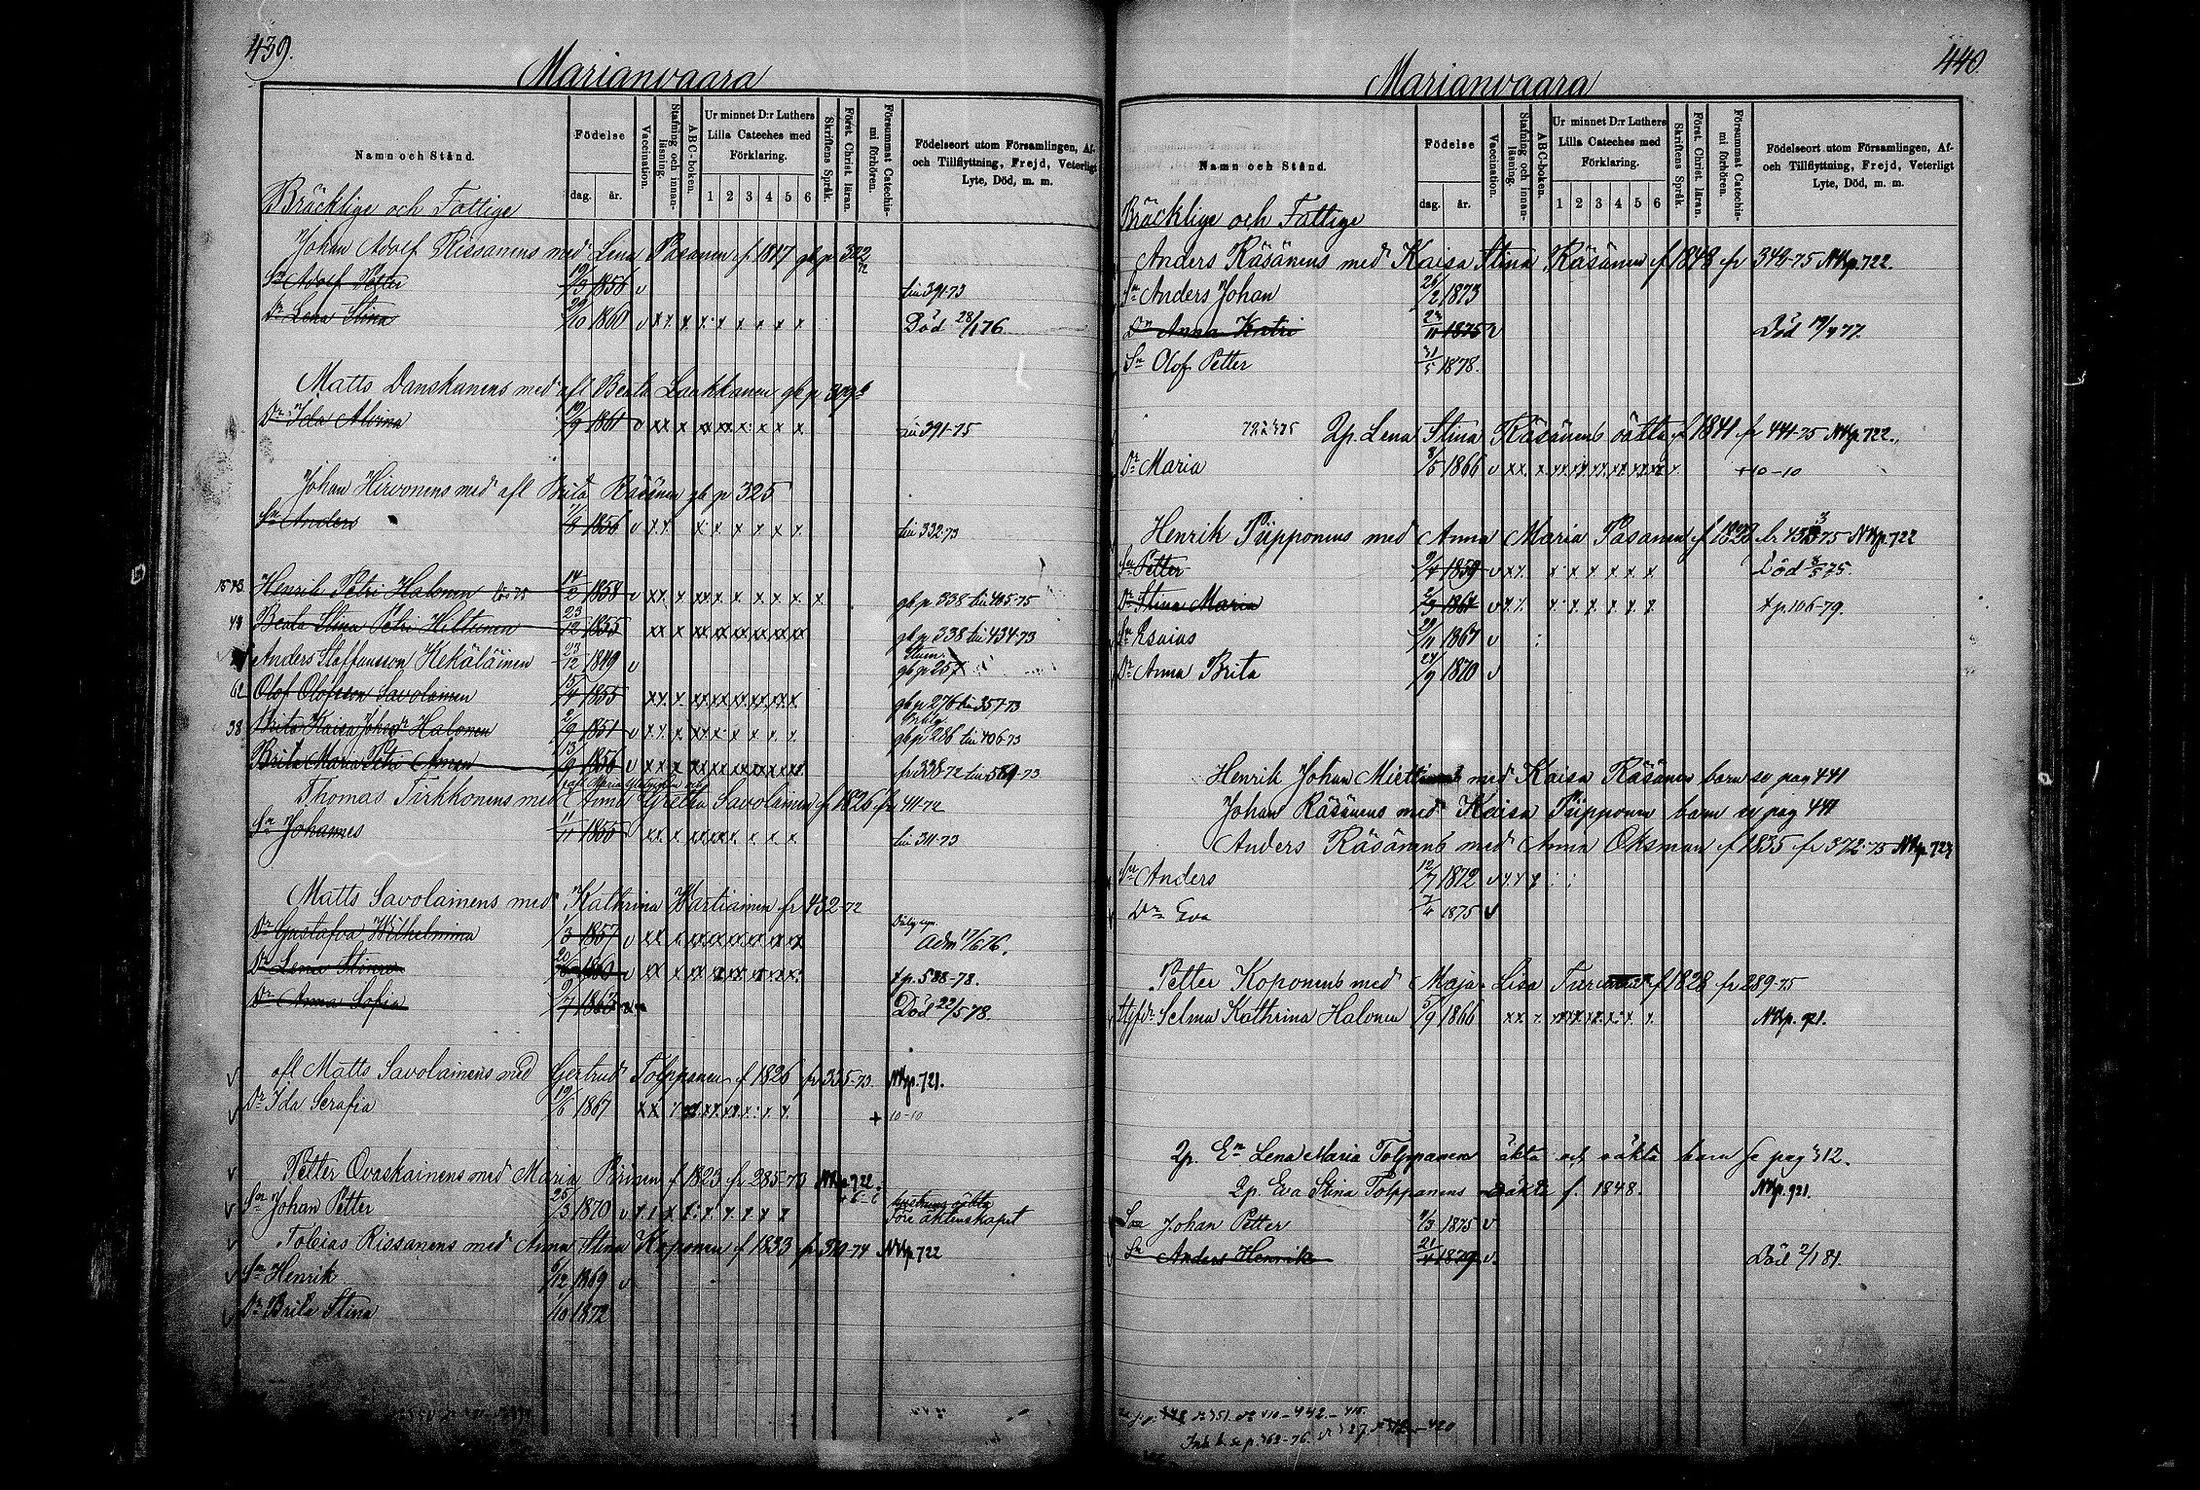 439.
Marianvaara
Namn och Stånd.
Födelse
dag. år.
Vaccination.
Stafning och innan-läsning.
ABC-boken.
Ur minnet D:r Luthers Lilla Cateches med Förklaring.
1 2 3 4 5 6
Skriftens Språk.
Först. Christ. läran.
Försummat Catechis-mi förhören.
Födelseort utom Församlingen, Af- och Tillflyttning, Frejd, Veterligt Lyte, Död, m. m.
Bräcklige och Fattige
Johan Adolf Rissanens med Lena Pasanen f 1817 gb p 322
Sn Adolf Petter 1856 v till 391-73
Dr Lena Stina 29/10 1860 v x x x x x x x x x Död 28/1 76.
Matts Danskanens med afl Beata Laukkanen gb p 309
Dr Ida Alvina 19/9 1861 v xx x xx xx x x x x till 391-75
Johan Hirvonens med afl Brita Räsänen gb p 325
Sn Anders 1856 v x x x x x x x x till 332-73
Henrik Petri Halonen 1858 v xx x xx x x x x x x gb p 338 till 405-75
49 Beata Stina Petri Hiltunen 23/12 1855 xx x xx xx xx xx gb p 338 till 434-73
Anders Staffansson Kekäläinen 23/12 1849 v Stum. gb p 257
62 Olof Olofsson Savolainen 15/4 1855 xx x xx xx xx xx gb p 276 till 357-73
38 Brita Kaisa Johsdr Halonen 2/9 1851 v x x x xx x x x x gb p 286 till 406-73
Brita Maria Petri 1856 v xx x xx xx xx xx fr 338-72 till 569-73
Thomas Tirkkonens med Anna Gretta Savolainen f 1826 fr 411-72
Sn Johannes 11/11 1855 v xx x xx xx x x x till 311-73
Matts Savolainens med Kathrina Wartiainen fr 432-72
Dr Gustafva Wilhelmina 1/3 1857 v xx x xx xx xx xx Adm 17/6 76.
Dr Lena Stina 1860 v xx x xx xx xx xx t p. 588-78.
Dr Anna Sofia 9/7 1863 Död 22/5 78.
afl Matts Savolainens med Gertrud Tolppanen f 1826 fr 335-73 NKp. 721.
Dr Ida Serafia 19/6 1867 x x x xx xx x x x + 10-10
Petter Ovaskainens med Maria Pirinen f 1823 fr 285-73 NKp. 722
Sn Johan Petter 25/3 1870 v x x x x x x x x x före äktenskapet
Tobias Rissanens med Anna Stina Koponen f 1833 fr 310-74 NKp. 722
Sn Henrik 6/12 1869 v
Dr Brita Stina 1/10 1872
440.
Marianvaara
Namn och Stånd.
Födelse
dag. år.
Vaccination.
Stafning och innan-läsning.
ABC-boken.
Ur minnet D:r Luthers Lilla Cateches med Förklaring.
1 2 3 4 5 6
Skriftens Språk.
Först. Christ. läran.
Försummat Catechis-mi förhören.
Födelseort utom Församlingen, Af- och Tillflyttning, Frejd, Veterligt Lyte, Död, m. m.
Bräcklige och Fattige
Anders Räsänens med Kaisa Stina Räsänen f 1848 fr 348-75 NKp. 722.
Sn Anders Johan 26/2 1873
Dr Anna Katri 1875 v Död 19/7 77.
Sn Olof Petter 31/5 1878.
Lena Stina Räsänens oäkta f 1841 fr 441-75 NKp. 722.
Dr Maria 8/5 1866 v xx x xx xx xx xx xx xx x + 10-10
Henrik Piipponens med Anna Maria Pasanen NKp. 722
Sn Petter 9/4 1859 v x x x x x x x x Död 75.
Dr Stina Maria 1861 v x x x x x x x x t p. 106-79.
Sn Esaias 29/11 1867 v
Dr Anna Brita 27/9 1870 v
Henrik Johan Miettinens med Kaisa Räsänen barn se pag 441
Johan Räsänens med Kaisa Piipponen barn se pag 441
Anders Räsänens med Anna Oksman f 1835 fr 372-75 NKp. 723
Sn Anders 12/7 1872 v x x x
Dr Eva 7/4 1875 v
Petter Koponens med Maja Lisa Turunen f 1828 fr 289-75
Selma Kathrina Halonen 5/9 1866 xx x xx xx x x x NKp. 921.
Lena Maria Tolppanens äkta och oäkta barn se pag 312.
Eva Stina Tolppanens oäkta f. 1848. NKp. 921.
Son Johan Petter 9/3 1875 v
Sn Anders Henrik 1879 v. Död 2/1 81.